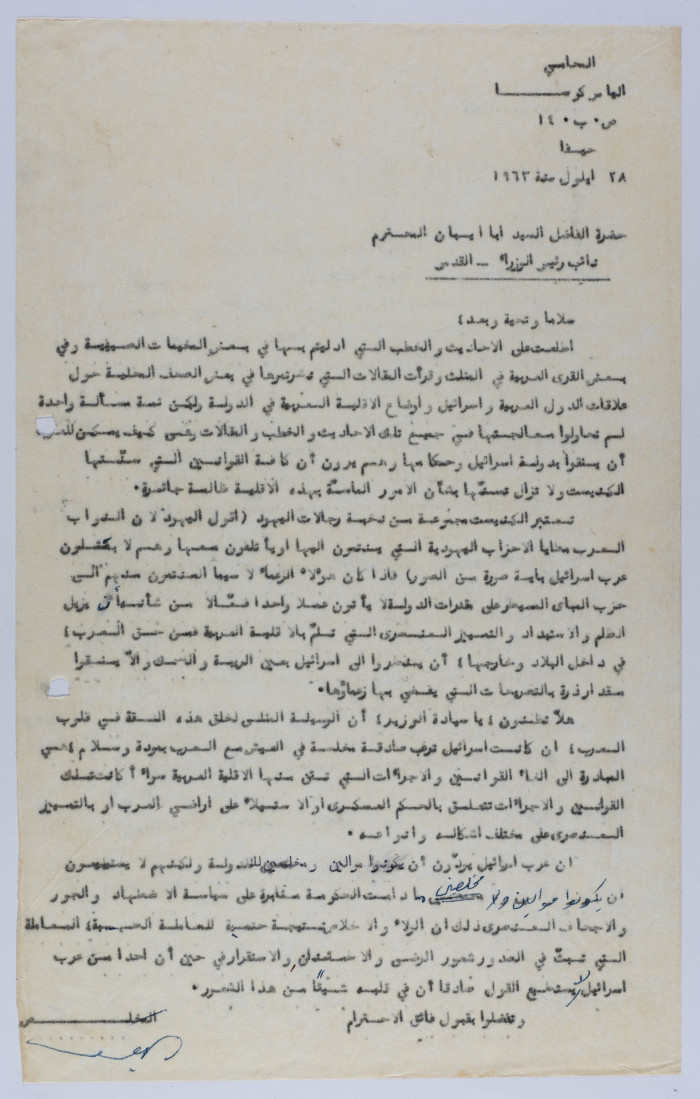 المحامي
الياس كوسا
ص٠ب٠ ١٤٠
حيفا
٢٨ ايلول سنة ١٩٦٣
حضرة الفاضل السيد ابا ايبان المحترم
نائب رئيس الوزراء – القدس
سلاما وتحية وبعد ،
اطلعت على الاحاديث والخطب التي ادليتم بها في بعض المخيمات الصيفية وفي
بعض القرى العربية في المثلث وقرأت المقالات التي نشرتموها في بعض الصحف المحلية حول
علاقات الدول العربية واسرائيل واوضاع الاقلية العربية في الدولة ولكن ثمة مسألة واحدة
لم تحاولوا معالجتها في جميع تلك الاحاديث والخطب والمقالات وهي كيف يمكن للعرب
أن يثقوا بدولة اسرائيل وحكامها وهم يرون أن كافة القوانين التي سنّتها
الكنيست ولا تزال تسنّها بشأن الامور الماسّة بهذه الاقلية ظالمة جائرة٠
تعتبر الكنيست مجموعة من نخبة رجالات اليهود (اقول اليهود لان النواب
العرب مطايا الاحزاب اليهودية التي ينتمون اليها او يأتلفون معها وهم لا يمثلون
عرب اسرائيل بأية صورة من الصور) فاذا كان هؤلاء الزعماء لا سيما المنتمون منهم الى
حزب المباى المسيطر على مقدرات الدولة لا يأتون عملا واحدا فعّالا من شأنه أن يزيل
الظلم والاستبداد والتمييز العنصرى التي تلمّ بالاقلية العربية فمن حق العرب ،
في داخل البلاد وخارجها ، أن ينظروا الى اسرائيل بعين الريبة والشك والاّ يثقوا
مقدار ذرة بالتصريحات التي يفضي بها زعماؤها٠
هلاّ تظنون ، يا سيادة الوزير ، أن الوسيلة المثلى لخلق هذه الثقة في قلوب
العرب ، ان كانت اسرائيل ترغب صادقة مخلصة في العيش مع العرب بمودة وسلام ، هي
المبادرة الى الغاء القوانين والاجراءات التي تئن منها الاقلية العربية سواء أكانت تلك
القوانين والاجراءات تتعلق بالحكم العسكرى او الاستيلاء على اراضي العرب او بالتمييز
العنصرى على مختلف اشكاله وانواعه ٠
ان عرب اسرائيل يودّون أن يكونوا موالين ومخلصين للدولة ولكنهم لا يستطيعون
أن يكونوا موالين ولا مخلصين ما دامت الحكومة مثابرة على سياسة الاضطهاد والجور
والاجحاف العنصرى ذلك أن الولاء والاخلاص نتيجة حتمية للمعاملة الحسنة ، المعاملة
التي تبثّ في الصدور شعور الرضى والاطمئنان والاستقرار في حين أن احدا من عرب
اسرائيل لا يستطيع القول صادقا أن في قلبه شيئًا من هذا الشعور٠
وتفضلوا بقبول فائق الاحترام
المخلص